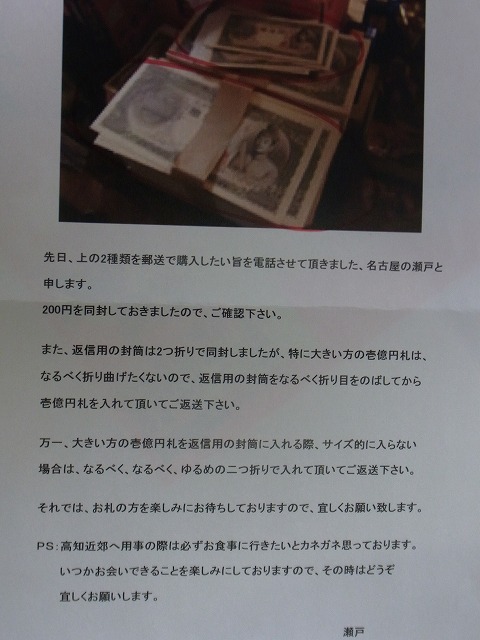 先日、上の2種類を郵送で購入したい旨を電話させて頂きました、名古屋の瀬戸と
申します。
200円を同封しておきましたので、ご確認下さい。
また、返信用の封筒は2つ折りで同封しましたが、特に大きい方の壱億円札は、
なるべく折り曲げたくないので、返信用の封筒をなるべく折り目をのばしてから
壱億円札を入れて頂いてご返送下さい。
万一、大きい方の壱億円札を返信用の封筒に入れる際、サイズ的に入らない
場合は、なるべく、なるべく、ゆるめの二つ折りで入れて頂いてご返送下さい。
それでは、お札の方を楽しみにお待ちしておりますので、宜しくお願い致します。
PS:高知近郊へ用事の際は必ずお食事に行きたいとカネガネ思っております。
いつかお会いできることを楽しみにしておりますので、その時はどうぞ
宜しくお願いします。
瀬戸